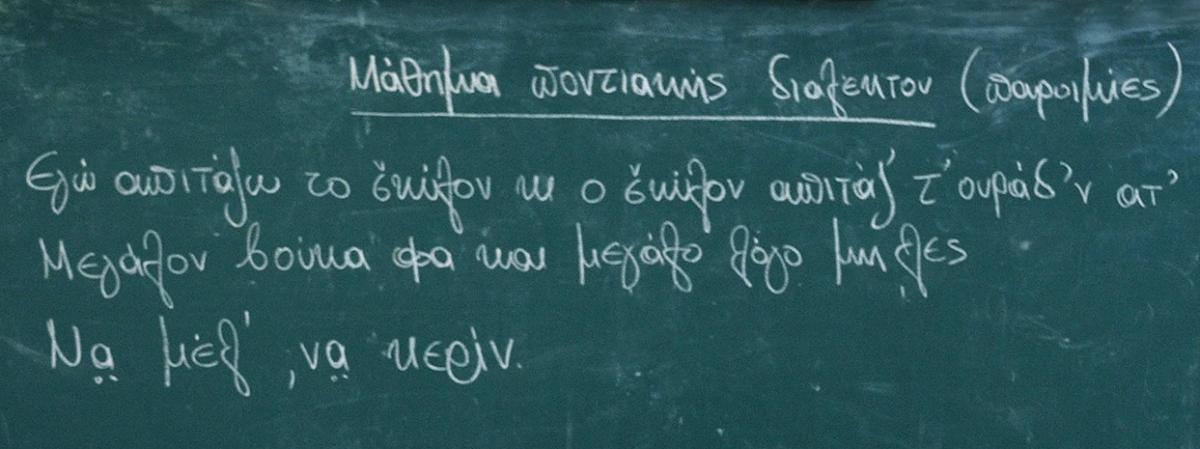 Μάθημα ποντιακής διαλέκτου (παροιμίες)
Εγώ απιτάζω το σ̌κύλον κι ο σ̌κύλον απιτάζ' τ' ουράδ'ν ατ'
Μεγάλον βούκα φα και μεγάλο λόγο μη λες
Να̤ μέλ', να̤ κερίν.